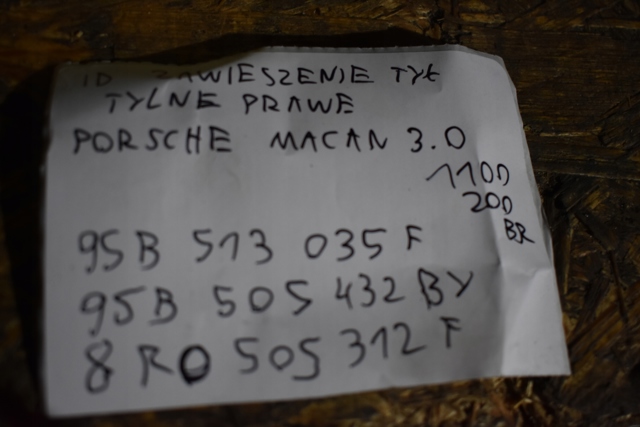 ID ZAWIESZENIE TYŁ
TYLNE PRAWE
PORSCHE MACAN 3.0
1100
200
BR
95B 513 035 F
95B 505 432 BY
8R0 505 312 F